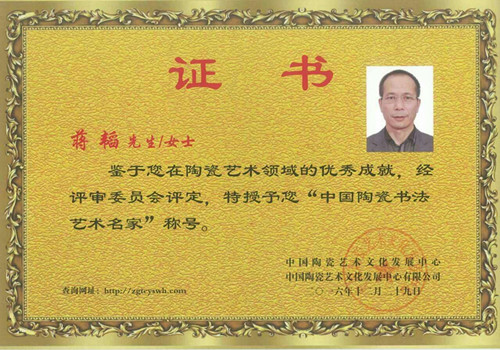 证 书
蒋 韬 先生/女士
鉴于您在陶瓷艺术领域的优秀成就，经
评审委员会评定，特授予您“中国陶瓷书法
艺术名家”称号。
中国陶瓷艺术文化发展中心
中国陶瓷艺术文化发展中心有限公司
查询网址：http://zgtcyswh.com
二〇一六年十二月二十九日